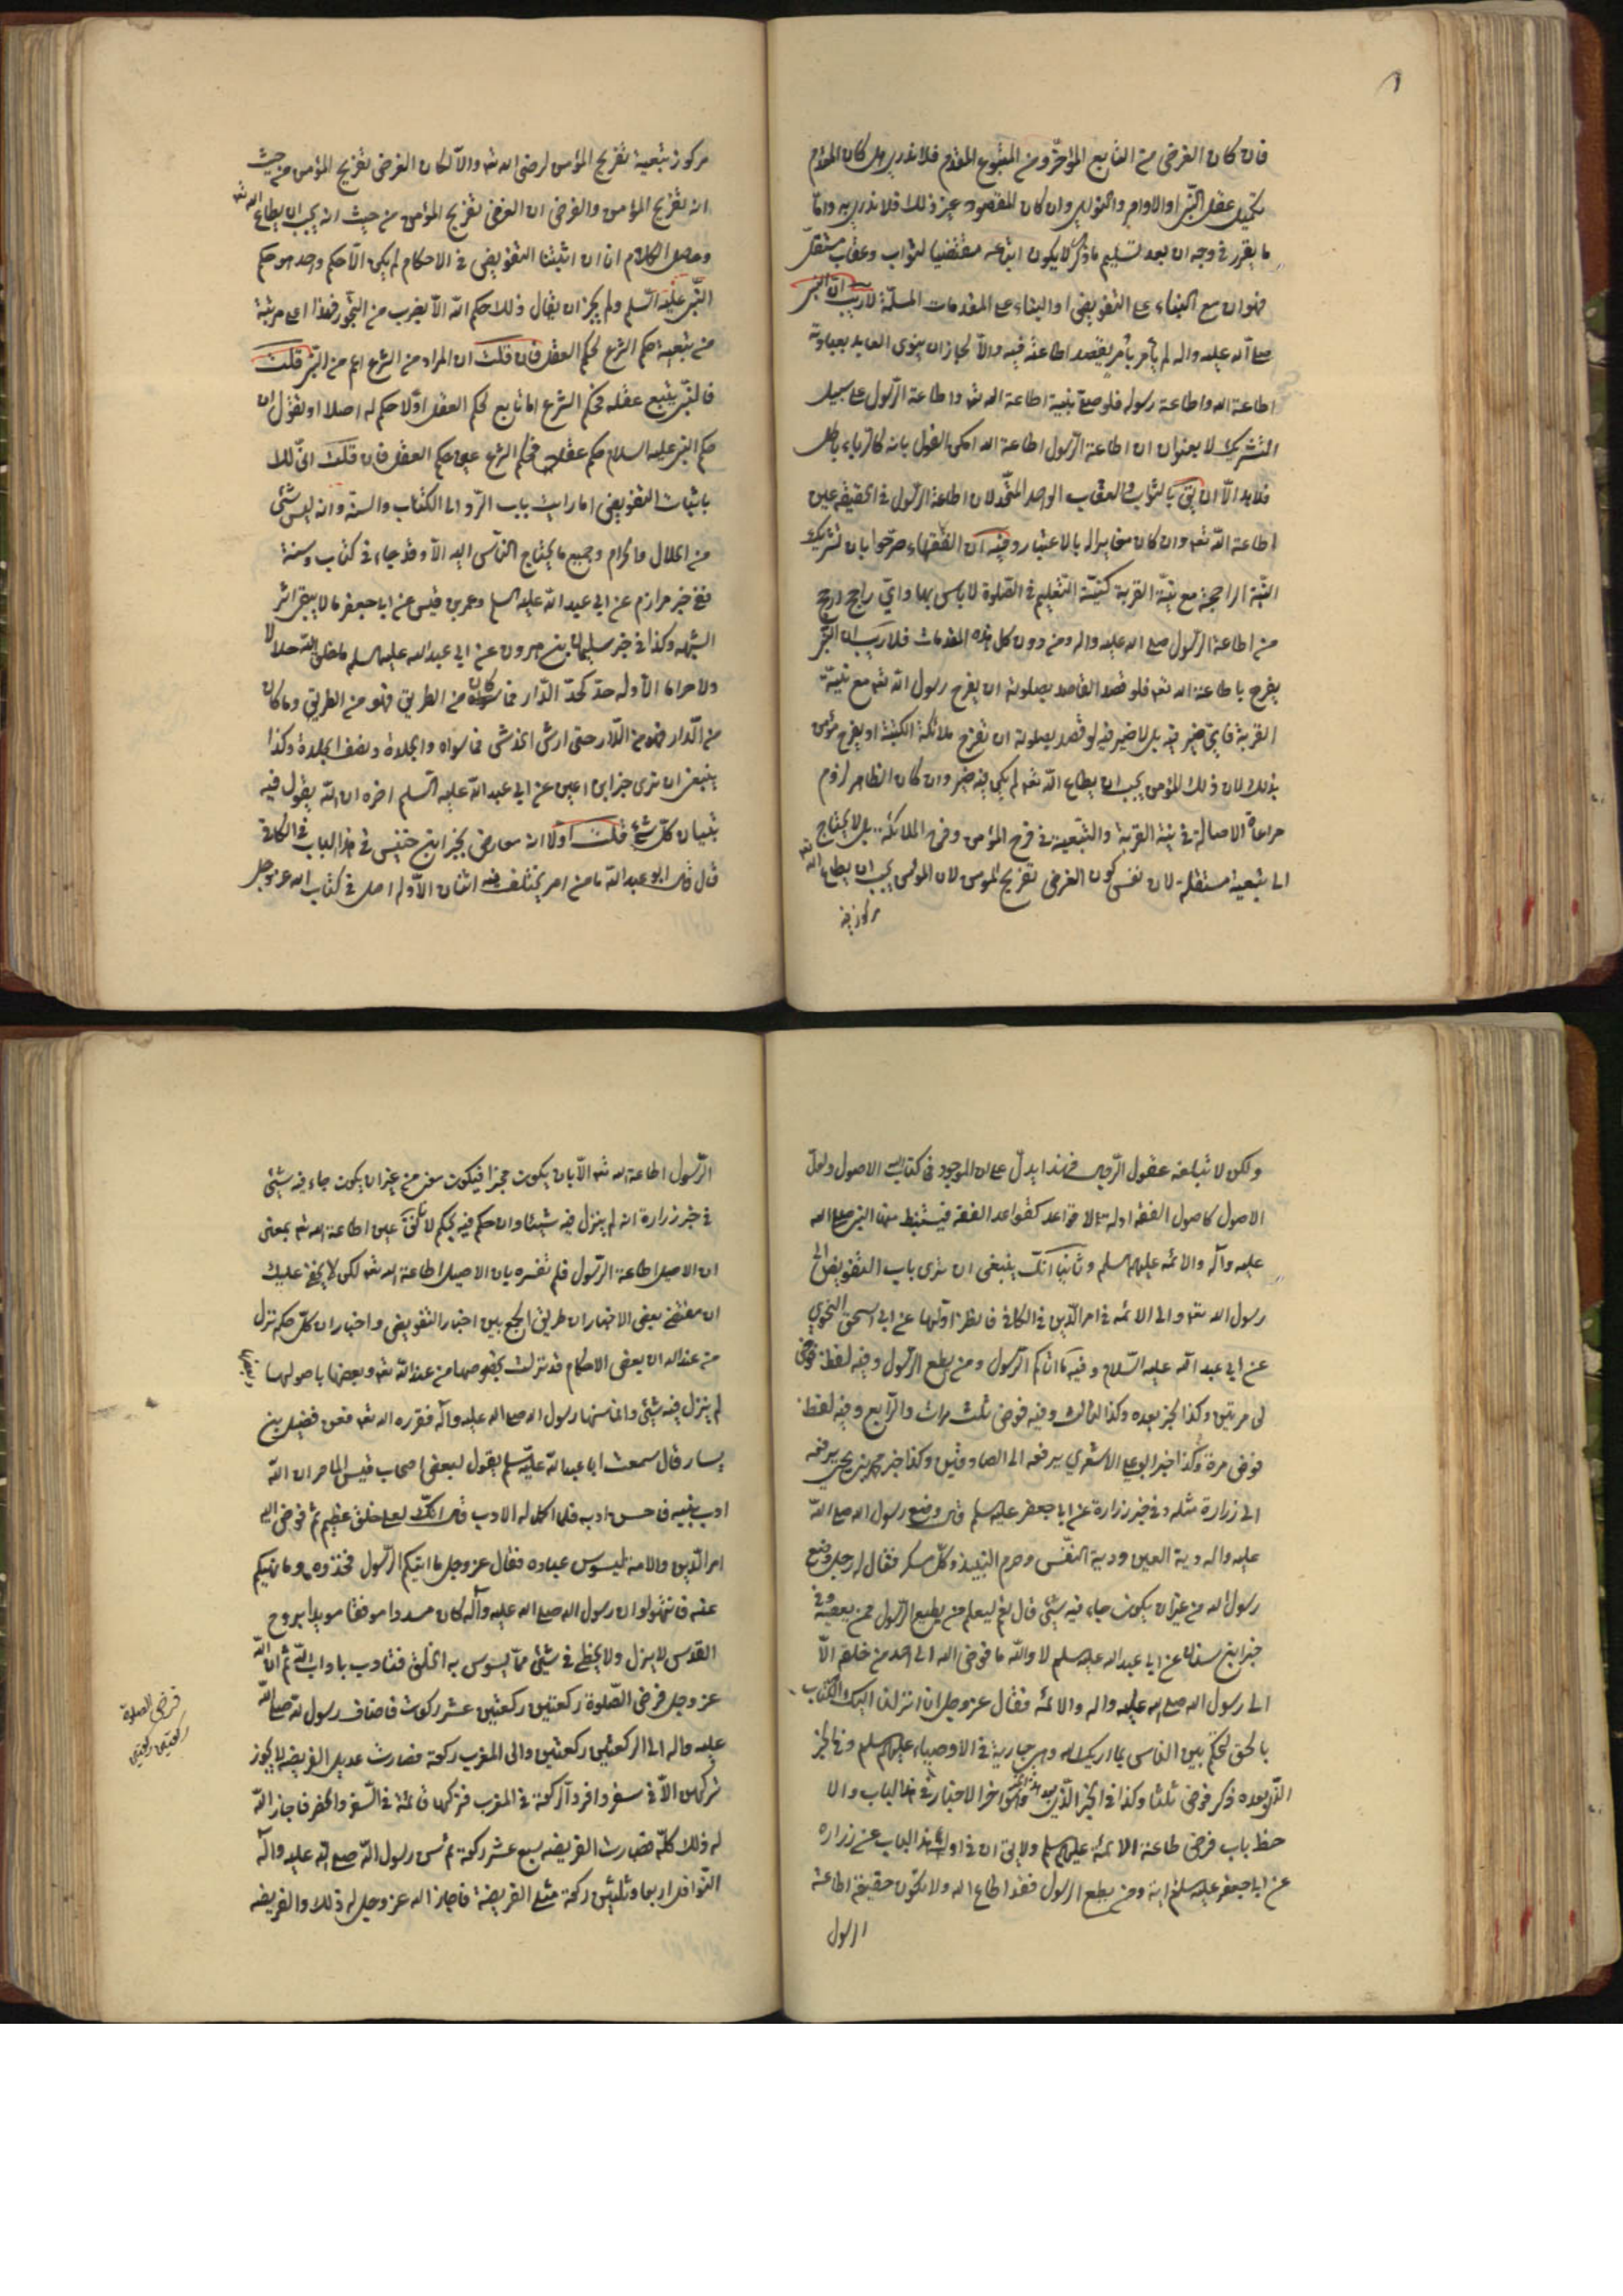 فان كان الغرض من التابع المؤخر ومن المتبوع المقدم فلا ندري هل كان المقدم
تكميل عقل النبي او الاوامر والنواهي وان كان المقصود غير ذلك فلا ندريه وامّا
ما يقرر في وجه ان بعد تسليم ما ذكر لا يكون اتباعه مقتضيا لثواب وعقاب مستقل
فهو ان مع البناء على التفويض او البناء على المقدمات المسلمة لا ريب انّ النبي
صلى الله عليه واله لم يأمر بأمر يقصد اطاعته فيه والّا لجاز ان ينوي العابد بعبادته
اطاعة الله واطاعة رسوله فلو صلى بنية اطاعة الله تعه واطاعة الرّسول على سبيل
التشريك لا بعنوان ان اطاعة الرّسول اطاعة الله امكن القول بانه كالرياء باطل
فلا بد الّا ان يق بالثواب والعقاب الواحد المتّحد لان اطاعة الرّسول في الحقيقة عين
اطاعة الله تعه وان كان مغايرا له بالاعتبار وفيه ان الفقهاء صرّحوا بان تشريك
النيّة الراجحة مع نيّة القربة كنيّة التعليم في الصّلوة لا باس بها واي راجح ارجح
من اطاعة الرّسول صلى الله عليه واله ومن دون كل هذه المقدمات فلا ريب ان النبي
يفرح باطاعة الله تعه فلو قصد القاصد بصلوته ان يفرح رسول الله تعه مع نية
القربة فاي ضير فيه بل لا ضير فيه لو قصد بصلوته ان تفرح ملائكة الكتبة او يفرح مؤمن
بذلك لان ذلك المؤمن يحب ان يطاع الله تعه لم يكن فيه ضير وان كان الظاهر لزوم
مراعاة الاصالة في نية القربة والتبعية في فرح المؤمن وفرح الملائكة بل لا يحتاج
الى تبعية مستقلة لان نفس كون الغرض تفريح المؤمن لان المؤمن يحب ان يطاع الله تعه
مركوز فيه
مركوز تبعية تفريح المؤمن لرضى الله تعه والّا لكان الغرض تفريح المؤمن من حيث
انه تفريح المؤمن والفرض ان الغرض تفريح المؤمن من حيث انه يحب ان يطاع الله تعه
وحاصل الكلام انا ان اثبتنا التفويض في الاحكام لم يكن الّا حكم واحد هو حكم
النّبي عليه السّلم ولم يجز ان يقال ذلك حكم الله الّا بضرب من التجوّز فهذا اعلى مرتبة
من تبعية حكم الشرع لحكم العقل فان قلت ان المراد من الشرع اعم من النبي قلت
فالنبي يتبع عقله فحكم الشرع اما تابع لحكم العقل او لا حكم له اصلا او نقول ان
حكم النبي عليه السلام حكم عقله فحكم الشرع عين حكم العقل فان قلت انّ لك
باثبات التفويض اما رايت باب الرّد الى الكتاب والسنة وانه ليس شئ
من الحلال والحرام وجميع ما يحتاج الناس اليه الّا وقد جاء في كتاب وسنة
ففي خبر مرازم عن ابي عبد الله عليه السلم وعمر بن قيس عن ابا جعفر ما لا يبقى اثر
الشبهة وكذا في خبر سليمان بن هرون عن ابي عبد الله عليه السلم ما خلق الله حلالا
ولا حراما الّا وله حدّ كحدّ الدّار فما كان من الطريق فهو من الطريق وما كان
من الدّار فهو من الدّار حتى ارش الخدش فما سواه والجلدة ونصف الجلدة وكذا
ينبغي ان ترى خبر ابن اعين عن ابي عبد الله عليه السّلم اخره ان الله يقول فيه
تبيان كل شئ قلت اولا انه معارض بخبر ابن خنيس في هذا الباب في الكافي
قال قال ابو عبد الله ما من امر يختلف فيه اثنان الّا وله اصل في كتاب الله عز وجل
ولكن لا تبلغه عقول الرّجال فهذا يدل على ان الموجود في كتاب الله الاصول ولعلّ
الاصول كاصول الفقه ادلة لا قواعد كقواعد الفقه فيستنبط منها النبي صلى الله
عليه وآله والائمه عليهم السلم وثانيا انّك ينبغي ان ترى باب التفويض الى
رسول الله تعه والى الائمه في امر الدّين في الكافي فانظر اوّلها عن ابي اسحق النحوي
عن ابي عبد الله عليه السّلام وفيه ما اتاكم الرّسول ومن يطع الرّسول وفيه لفظ فوّض
لى مرتين وكذا الخبر بعده وكذا الثالث وفيه فوض ثلث مرات والرّابع وفيه لفظ
فوض مرة وكذا خبر ابو علي الاشعري يرفعه الى الصادقين وكذا خبر محمد بن يحيى يرفعه
الى زرارة مثله وفي خبر زرارة عن ابا جعفر عليه سلم قال وضع رسول الله صلى الله
عليه واله دية العين ودية النّفس وحرم النبيذ وكلّ مسكر فقال له رجل وضع
رسول الله من غير ان يكون جاء فيه شئ قال نعم ليعلم من يطيع الرّسول ممن يعصيه وفي
خبر ابن سنان عن ابي عبد الله عليه سلم لا والله ما فوض الله الى احد من خلقه الّا
الى رسول الله صلى الله عليه واله والائمة فقال عز وجل انا انزلنا اليك الكتاب
بالحق لتحكم بين الناس بما اريك الله وهي جارية في الاوصياء عليهم سلم وفي الخبر
الذي بعده ذكر فوض ثلثا وكذا في الخبر الذي بعد وهو اخر الاخبار في هذا الباب والا
حظ باب فرض طاعة الائمة عليهم سلم ولا يق ان في اول هذا الباب عن زرارة
عن ابا جعفر عليه سلم اية ومن يطع الرسول فقد اطاع الله ولا تكون حقيقة اطاعة
الرسول
الرّسول اطاعة الله تعه الّا بان يكون مخبرا فيكون معنى من غير ان يكون جاء فيه شئ
في خبر زرارة انه لم ينزل فيه شيئا وان حكم فيه بحكم لانّا نق عين اطاعة الله تعه بمعنى
ان الاصيل اطاعة الرّسول فلم تفسره بان الاصيل اطاعة الله تعه لكن لا يخفى عليك
ان مقتضى بعض الاخبار ان طريق الجمع بين اخبار التفويض واخبار ان كلّ حكم نزل
من عند الله ان بعض الاحكام قد نزلت بخصوصها من عند الله تعه وبعضها باصولها
لم ينزل فيه شئ وانما سنها رسول الله صلى الله عليه وآله فقرره الله تعه فعن فضيل بن
يسار قال سمعت ابا عبد الله عليه سلم يقول لبعض اصحاب قيس الماصر ان الله
ادب نبيه فاحسن ادبه فلما اكمل له الادب قال انّك لعلى خلق عظيم ثم فوض اليه
امر الدّين والامة ليسوس عباده فقال عز وجل ما اتيكم الرّسول فخذوه وما نهيكم
عنه فانتهوا وان رسول الله صلى الله عليه وآله كان مسددا موفقا مويدا بروح
القدس لا يزل ولا يخطئ في شئ ممّا يسوس به الخلق فتادب باداب الله ثم ان الله
عز وجل فرض الصّلوة ركعتين ركعتين عشر ركعات فاضاف رسول الله صلى الله
عليه واله الى الركعتين ركعتين والى المغرب ركعة فصارت عديل الفريضه لا يجوز
تركهن الّا في سفر وافرد الركعة في المغرب فتركها قائمة في السّفر والحضر فاجاز الله
له ذلك كلّه فصارت الفريضه سبع عشر ركعة ثم سن رسول الله صلى الله عليه وآله
النّوافل اربعا وثلثين ركعة مثلى الفريضة فاجاز الله عز وجل له ذلك والفريضه
فرض الصلوة
ركعتين ركعتين